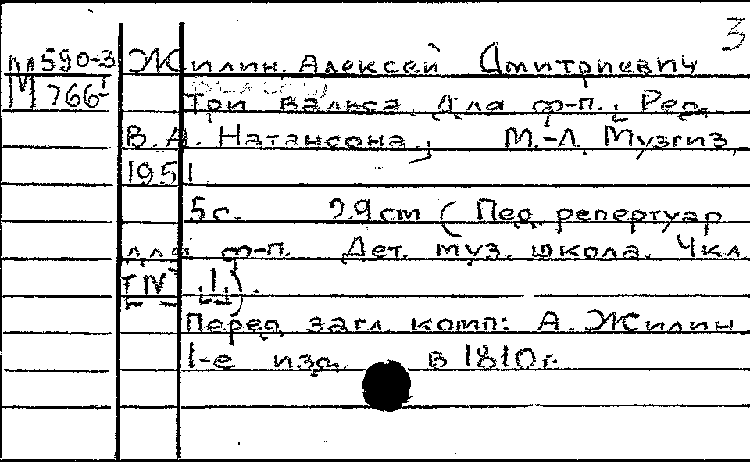 3
М 590-3 Жилин, Алексей Дмитриевич
М 766-I Три вальса. Для ф-п.; Ред.
В. А. Натансона.; М.-Л. Музгиз,
1951
5с. 29cm (Пед. репертуар
для ф-п. Дет. муз. школа. 4кл.
[IV]. [I]).
Перед загл. комп: А. Жилин.
1-е изд. в 1810г.